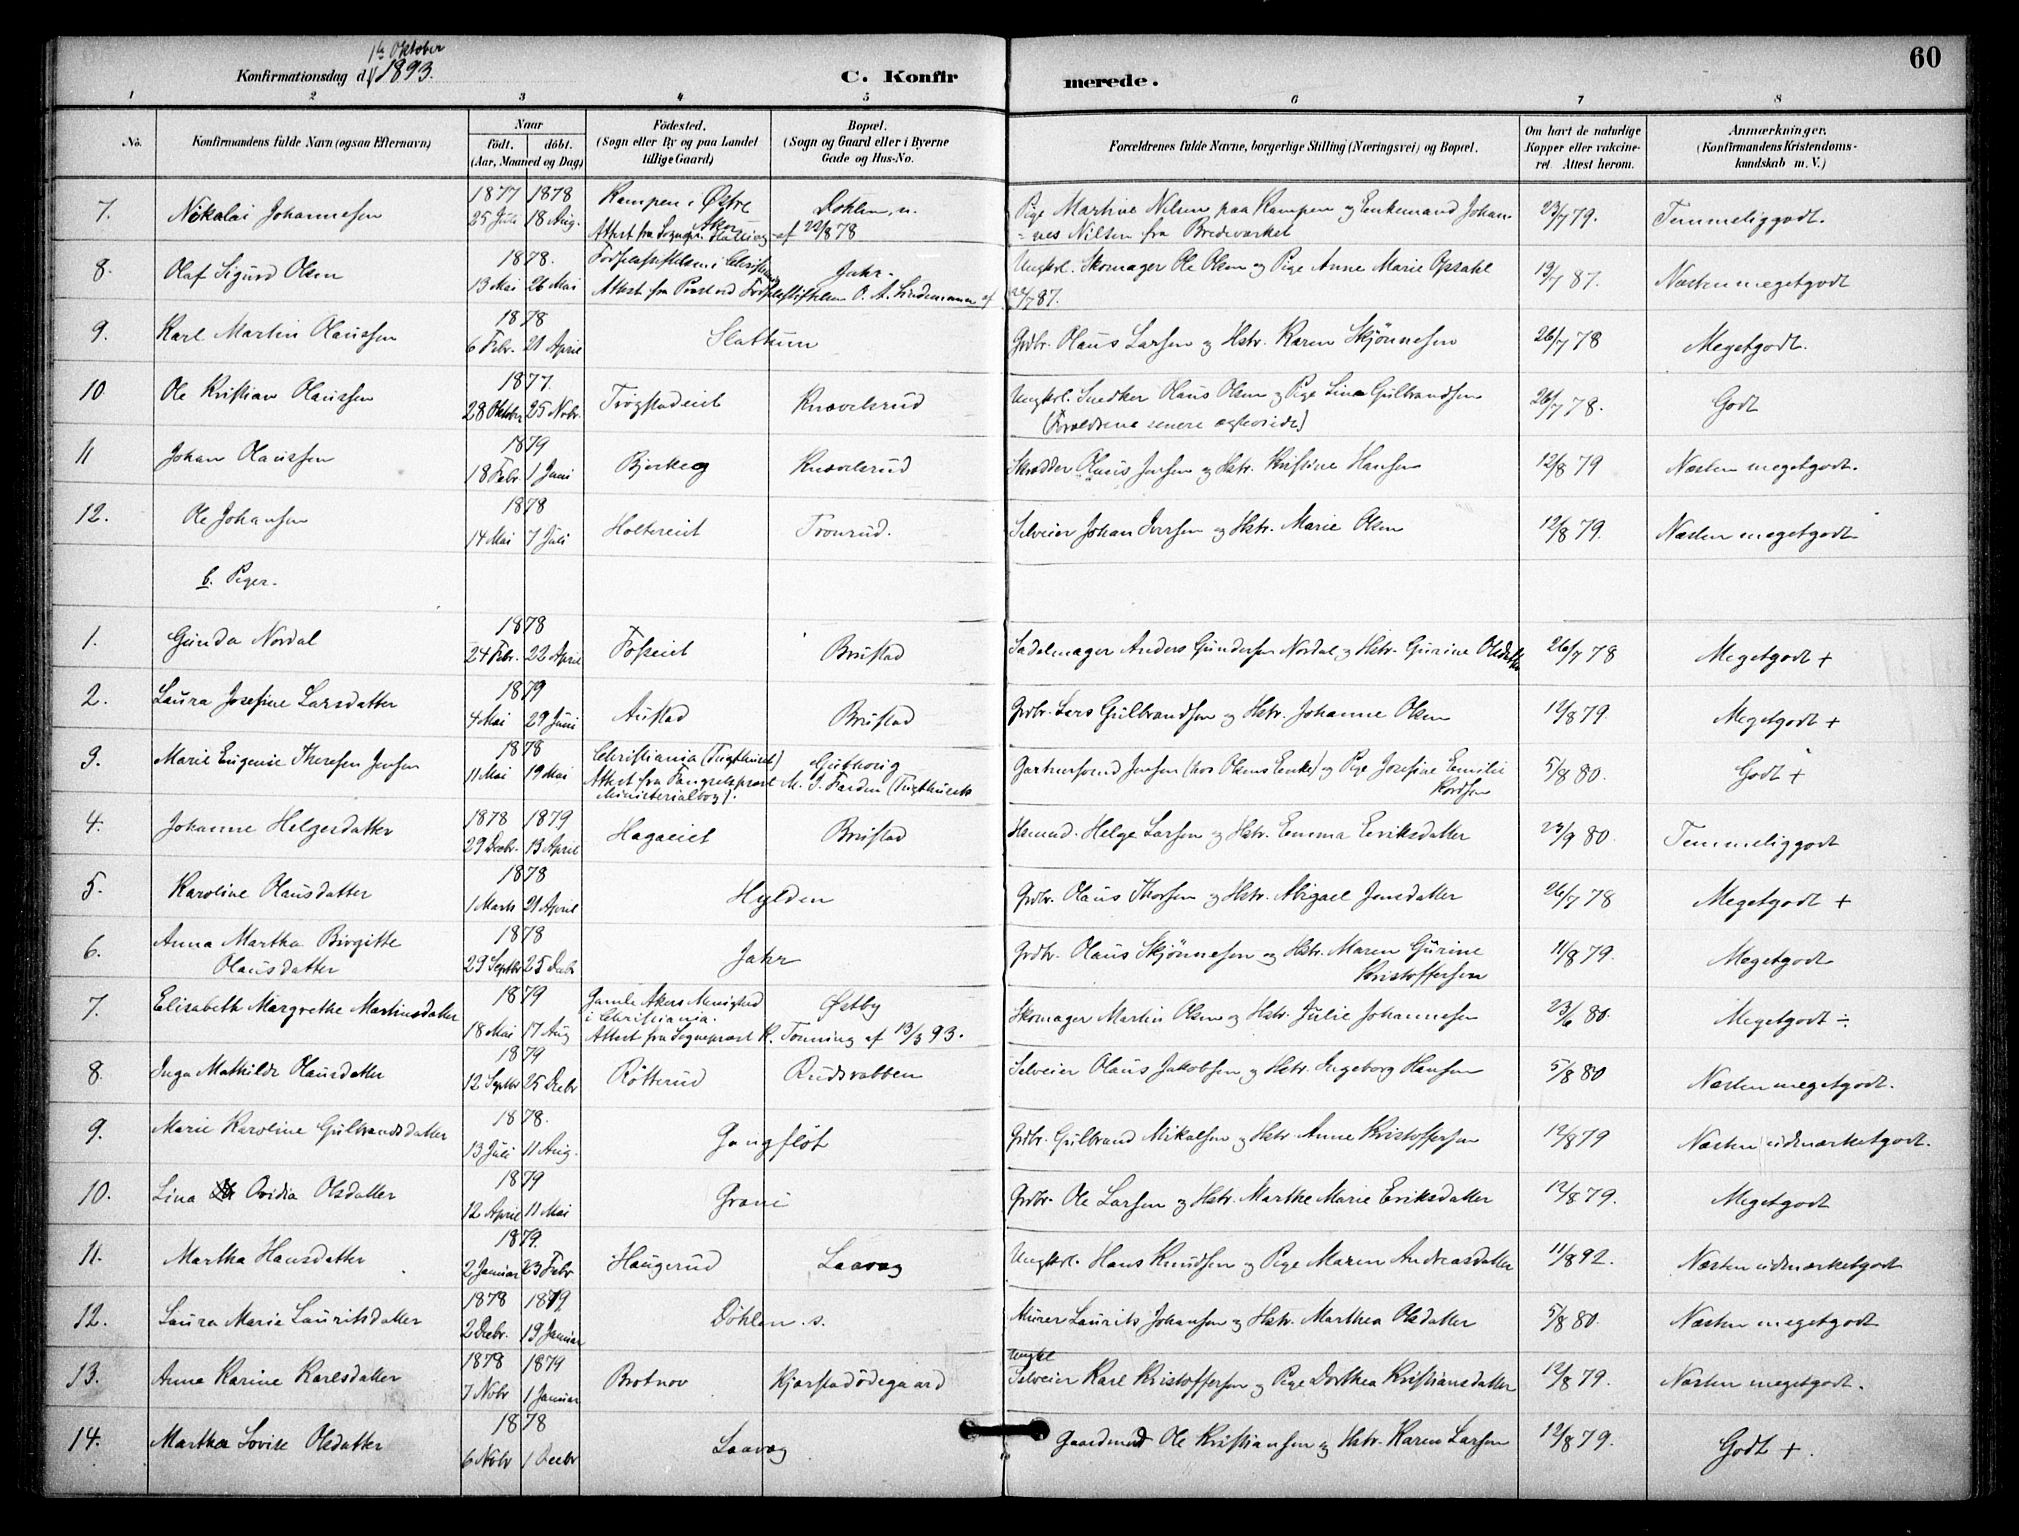 60
1ste Oktober
Konfirmationsdag d. 1893.
C. Konfirmerede.
1 2 3 4 5 6 7 8
No.
Konfirmandens fulde Navn (ogsaa Efternavn)
Naar
født. døbt.
(Aar, Maaned og Dag)
Fødested.
(Sogn eller By og paa Landet
tillige Gaard)
Bopæl.
(Sogn og Gaard eller i Byerne
Gade og Hus-No.
Forældrenes fulde Navne, borgerlige Stilling (Næringsvei) og Bopæl.
Om havt de naturlige
Kopper eller vakcine-
ret. Attest herom.
Anmærkninger.
(Konfirmandens Kristendoms-
kundskab m. V.)
7. Nikolai Johannesen 1877 25 Juli 1878 18 Aug. Kampen i Østre Aker Dohlen, n. Pige Martine Nilsen paa Kampen og Enkemand Johan- 23/7 79. Temmeliggodt.
Attest fra Sognepr. af 22/8 78 nes Nilsen fra Bredeværket
8. Olaf Sigurd Olsen 1878. 13 Mai 26 Mai Fødselsstiftelsen i Christiania Jahr. Ungkrl. Skomager Ole Olsen og Pige Anne Marie Opsahl 19/7 87. Næsten megetgodt
Attest fra Præst ved Fødselsstiftelsen O. A. Lindemann af 22/7 87.
9. Karl Martin Olaussen 1878 6 Febr. 21 April Slattum Grdbr. Olaus Larsen og Hstr. Karen Skjønnesen 26/7 78 Megetgodt.
10. Ole Kristian Olaussen 1877. 28 Oktober 25 Nobr. Trøgstadeiet Knavelsrud Ungkrl. Snedker Olaus Olsen og Pige Lina Gulbrandsen 26/7 78. Godt
(Forældrene senere ægteviede)
11 Johan Olaussen 1879 18 Febr. 1 Juni Bjerkeg Knavelsrud Skrædder Olaus Jensen og Hstr. Kristine Hansen 12/8 79 Næsten megetgodt.
12. Ole Johansen 1878 14 Mai 7 Juli Holtereiet Tronrud. Selveier Johan Iversen og Hstr. Marie Olsen 12/8 79. Næsten megetgodt
b. Piger.
1. Gunda Nordal 1878 24 Febr. 22 April Fosseiet Brustad Sadelmager Anders Gundersen Nordal og Hstr. Gurine Olsdatter 26/7 78 Megetgodt +
2. Laura Josefine Larsdatter 1879 4 Mai 29 Juni Austad Brustad Grdbr. Lars Gulbrandsen og Hstr. Johanne Olsen 12/8 79. Megetgodt +
3. Marie Eugenie Theresen Jensen 1878 11 Mai 19 Mai Christiania (Tugthuset) Guthorig Gartnersvend Jensen (hos Olsens Enke) og Pige Josefine Emilie 5/8 80. Godt +
Attest fra Fængselspræst M. J. Farden (Tugthusets
Ministerialbog).
4. Johanne Helgesdatter 1878 29 Decbr. 1879 13 April Hagaeiet Brustad Husmd. Helge Larsen og Hstr. Emma Eriksdatter 23/9 80. Temmeliggodt
5. Karoline Olausdatter 1878 1 Marts 21 April Hylden Grdbr. Olaus Thorsen og Hstr. Abigael Jensdatter 26/7 78 Megetgodt +
6. Anna Martha Birgitte Olausdatter 1878 29 Septbr 25 Decbr Jahr Grdbr. Olaus Skjønnesen og Hstr. Maren Gurine Kristoffersen 11/8 79. Megetgodt
7. Elisabeth Margrethe Martinsdatter 1879 18 Mai 17 Aug Gamle Akers Menighed i Christiania. Østby Skomager Martin Olsen og Hstr. Julie Johannesen 23/6 80. Megetgodt ÷
Attest fra Sognepræst K. Tønning af 13/3 93.
8. Inga Mathilde Olausdatter 1879 12 Septbr 25 Decbr Røtterud Rudsrabben Selveier Olaus Jakobsen og Hstr. Ingeborg Hansen 5/8 80 Næsten megetgodt.
9. Marie Karoline Gulbrandsdatter 1878. 13 Juli 11 Aug. Gangfløt Grdbr. Gulbrand Mikalsen og Hstr. Anne Kristoffersen 12/8 79 Næsten udmærketgodt.
10. Lina Ovidia Olsdatter 1879 12 April 11 Mai Grani Grdbr. Ole Larsen og Hstr. Marthe Marie Eriksdatter 12/8 79. Megetgodt
11. Martha Hansdatter 1879. 2 Januar 23 Febr Haugerud Laavag Ungkrl. Hans Knudsen og Pige Maren Andreasdatter 11/8 92. Næsten udmærketgodt
12. Laura Marie Lauritsdatter 1878 2 Decbr. 1879 19 Januar Döhlen. s. Murer Laurits Johansen og Hstr. Marthea Olsdatter 5/8 80. Næsten megetgodt
13. Anne Karine Karlsdatter 1878 7 Nobr 1879 1 Januar Brotnov Kjærstadødegaard Ungkl Selveier Karl Kristoffersen og Pige Dorthea Kristiansdatter 12/8 79. Næsten megetgodt.
14. Martha Lovise Olsdatter 1878 6 Nobr 1 Decbr Laavag Gaardmd Ole Kristiansen og Hstr. Karen Larsen 12/8 79. Godt +.